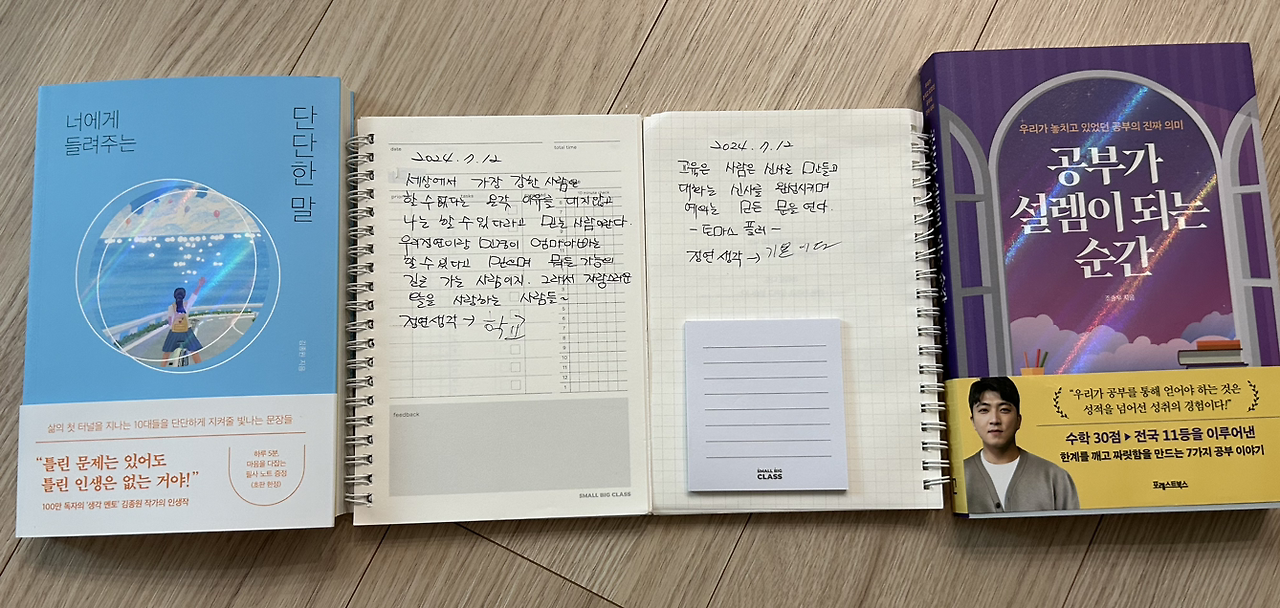 너에게
들려주는
단단한 말
김종원 지음
삶의 첫 터널을 지나는 10대들을 단단하게 지켜줄 빛나는 문장들
“틀린 문제는 있어도
틀린 인생은 없는 거야!”
100만 독자의 '생각 멘토' 김종원 작가의 인생작
하루 5분,
마음을 다잡는
필사 노트 증정
(초판 한정)
date
total time
2024. 7. 12
세상에서 가장 강한 사람은
할 수 없다는 생각 이유를 대지않고
나는 할 수 있다고 믿는 사람이란다.
우리정연이랑 엄마아빠는
할 수 있다고 믿으며 뭐든 가능의
길을 가는 사람이지. 그래서 자랑스러운
말을 사랑하는 사람들~
정연생각 → 학교
tasks
10 minute check
feedback
SMALL BIG CLASS
2024. 7. 12
교육은 사람은 신사로 만들고
대화는 신사를 완성시키며
예의는 모든 문을 연다.
- 토마스 풀러 -
정연 생각 → 기본이다
SMALL BIG
CLASS
우리가 놓치고 있었던 공부의 진짜 의미
공부가
설렘이 되는
순간
조승우 지음
“우리가 공부를 통해 얻어야 하는 것은
성적을 넘어선 성취의 경험이다!”
수학 30점 ▶ 전국 11등을 이루어낸
한계를 깨고 짜릿함을 만드는 7가지 공부 이야기
포레스트북스